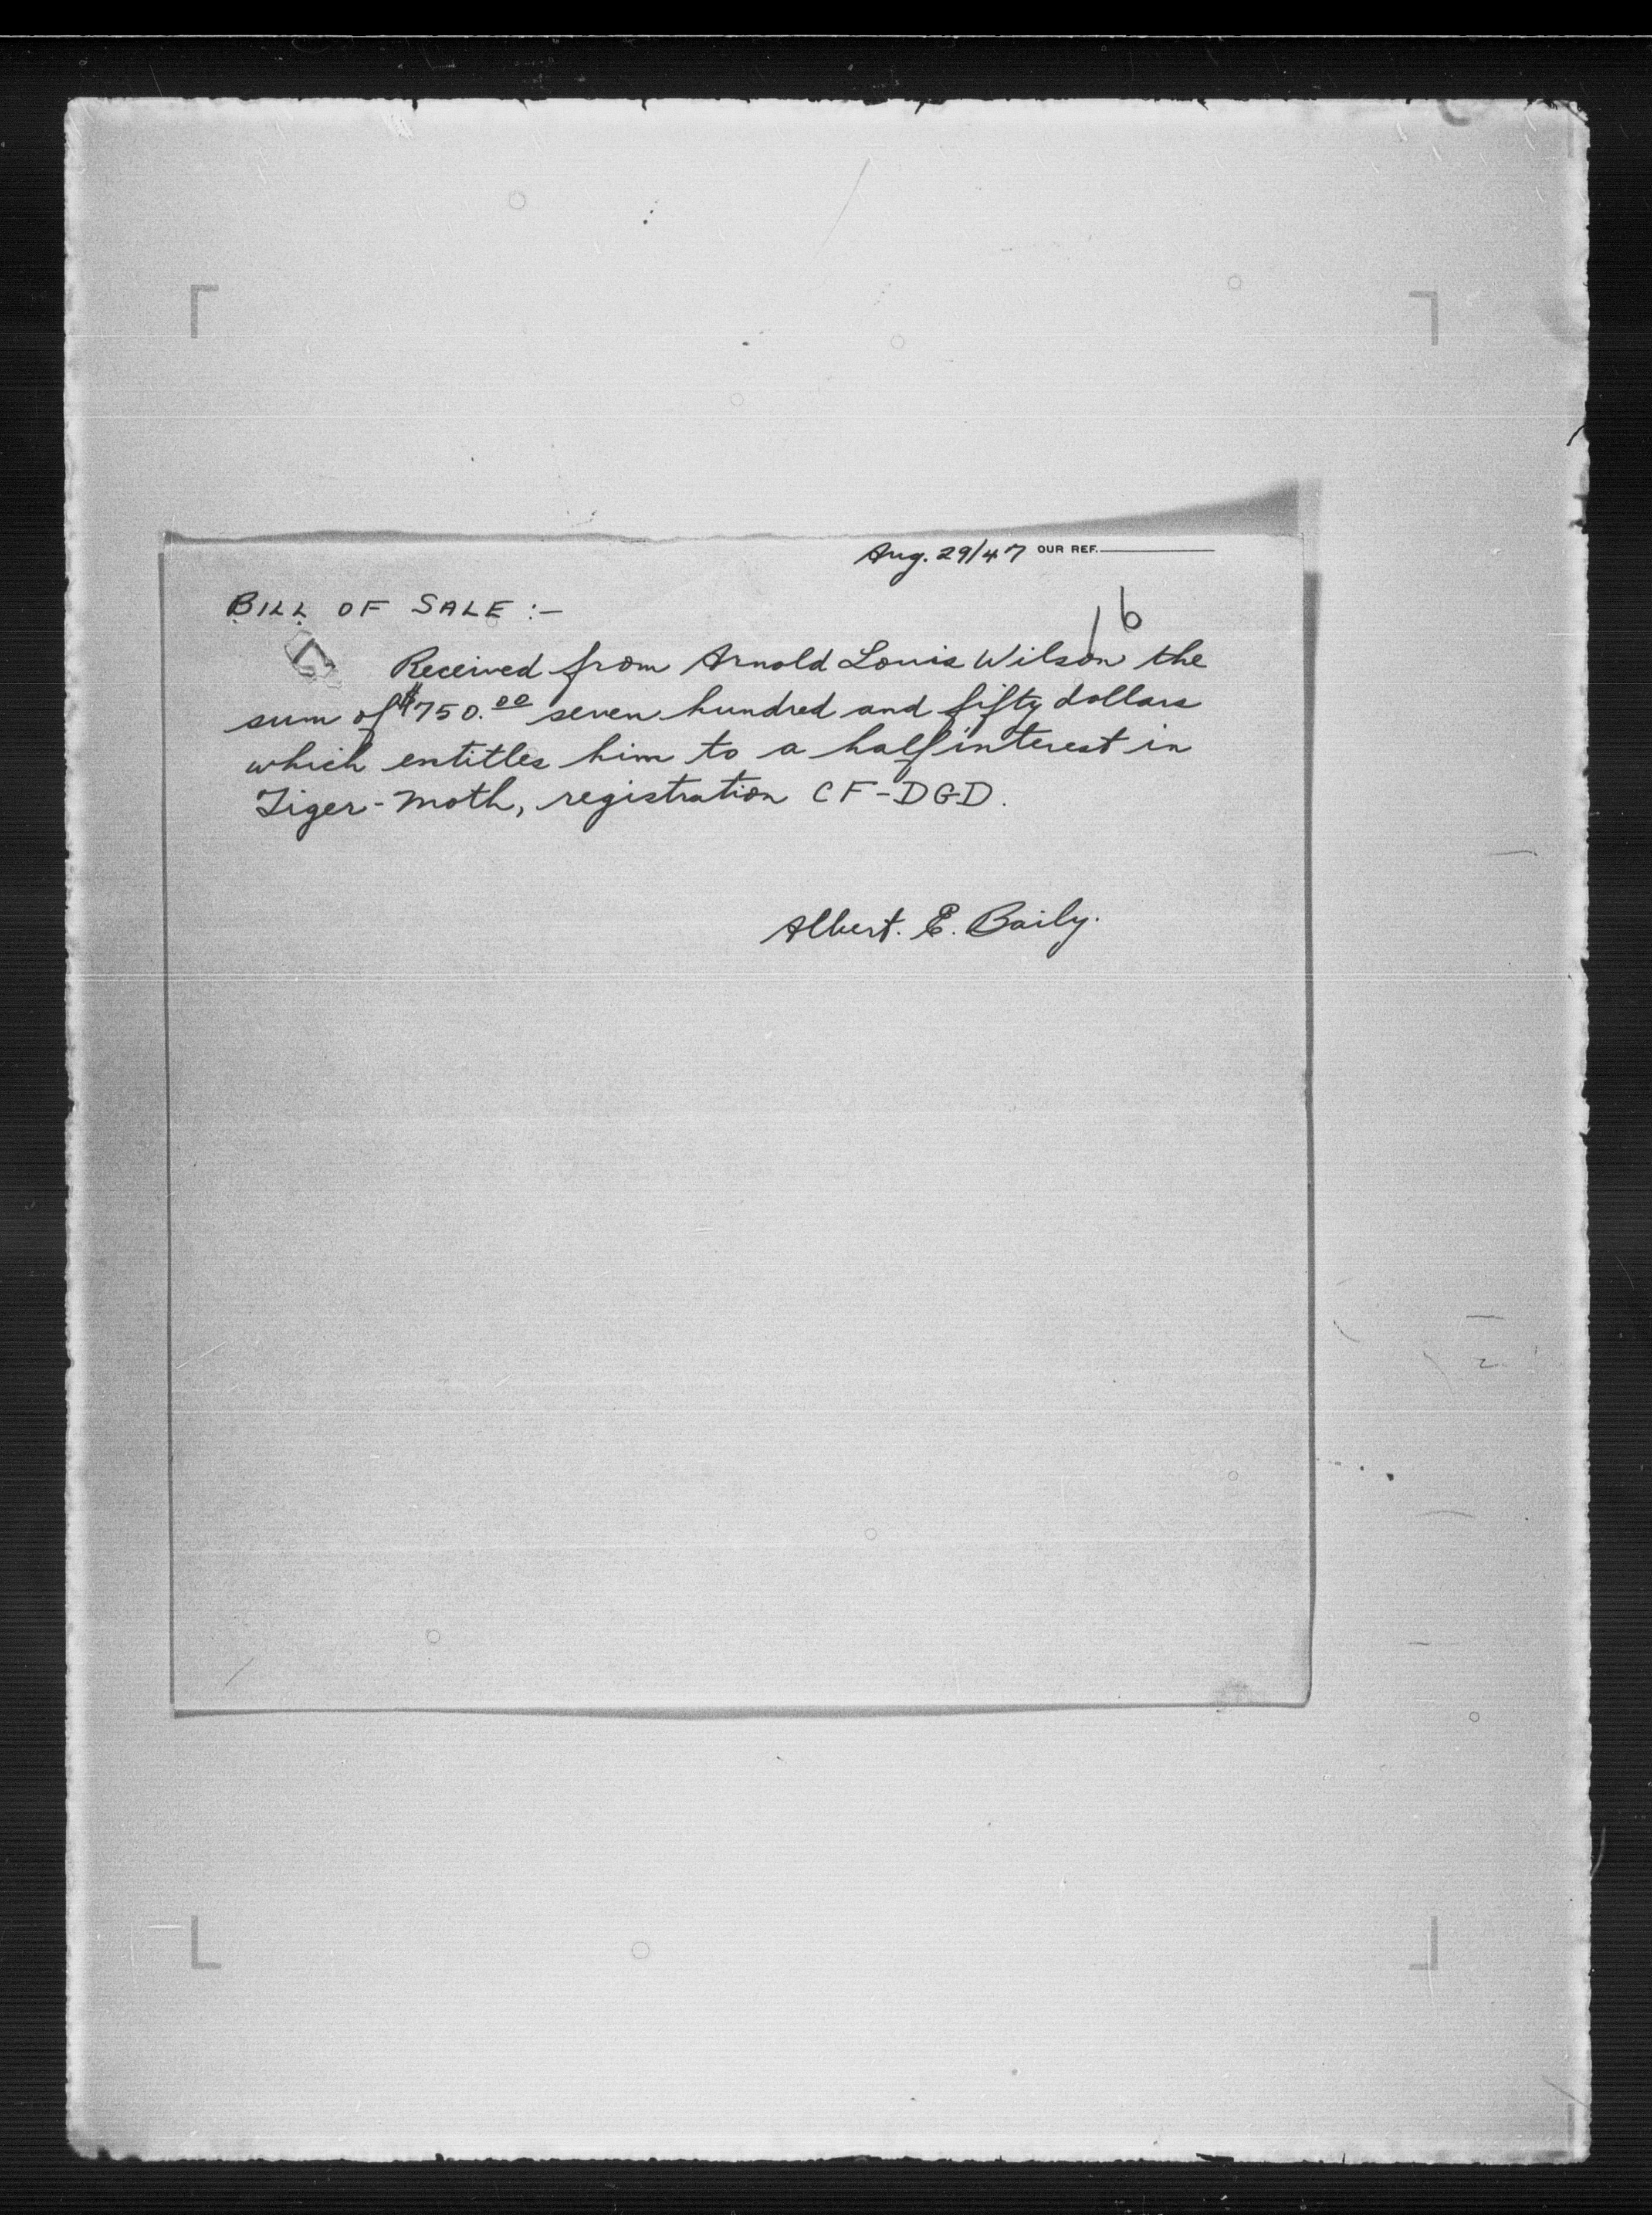 Aug. 29/47 OUR REF.
16
BILL OF SALE :-
Received from Arnold Louis Wilson the
sum of $750.00 seven hundred and fifty dollars
which entitles him to a half interest in
Tiger-Moth, registration CF-DGD.
Albert. E. Baily.